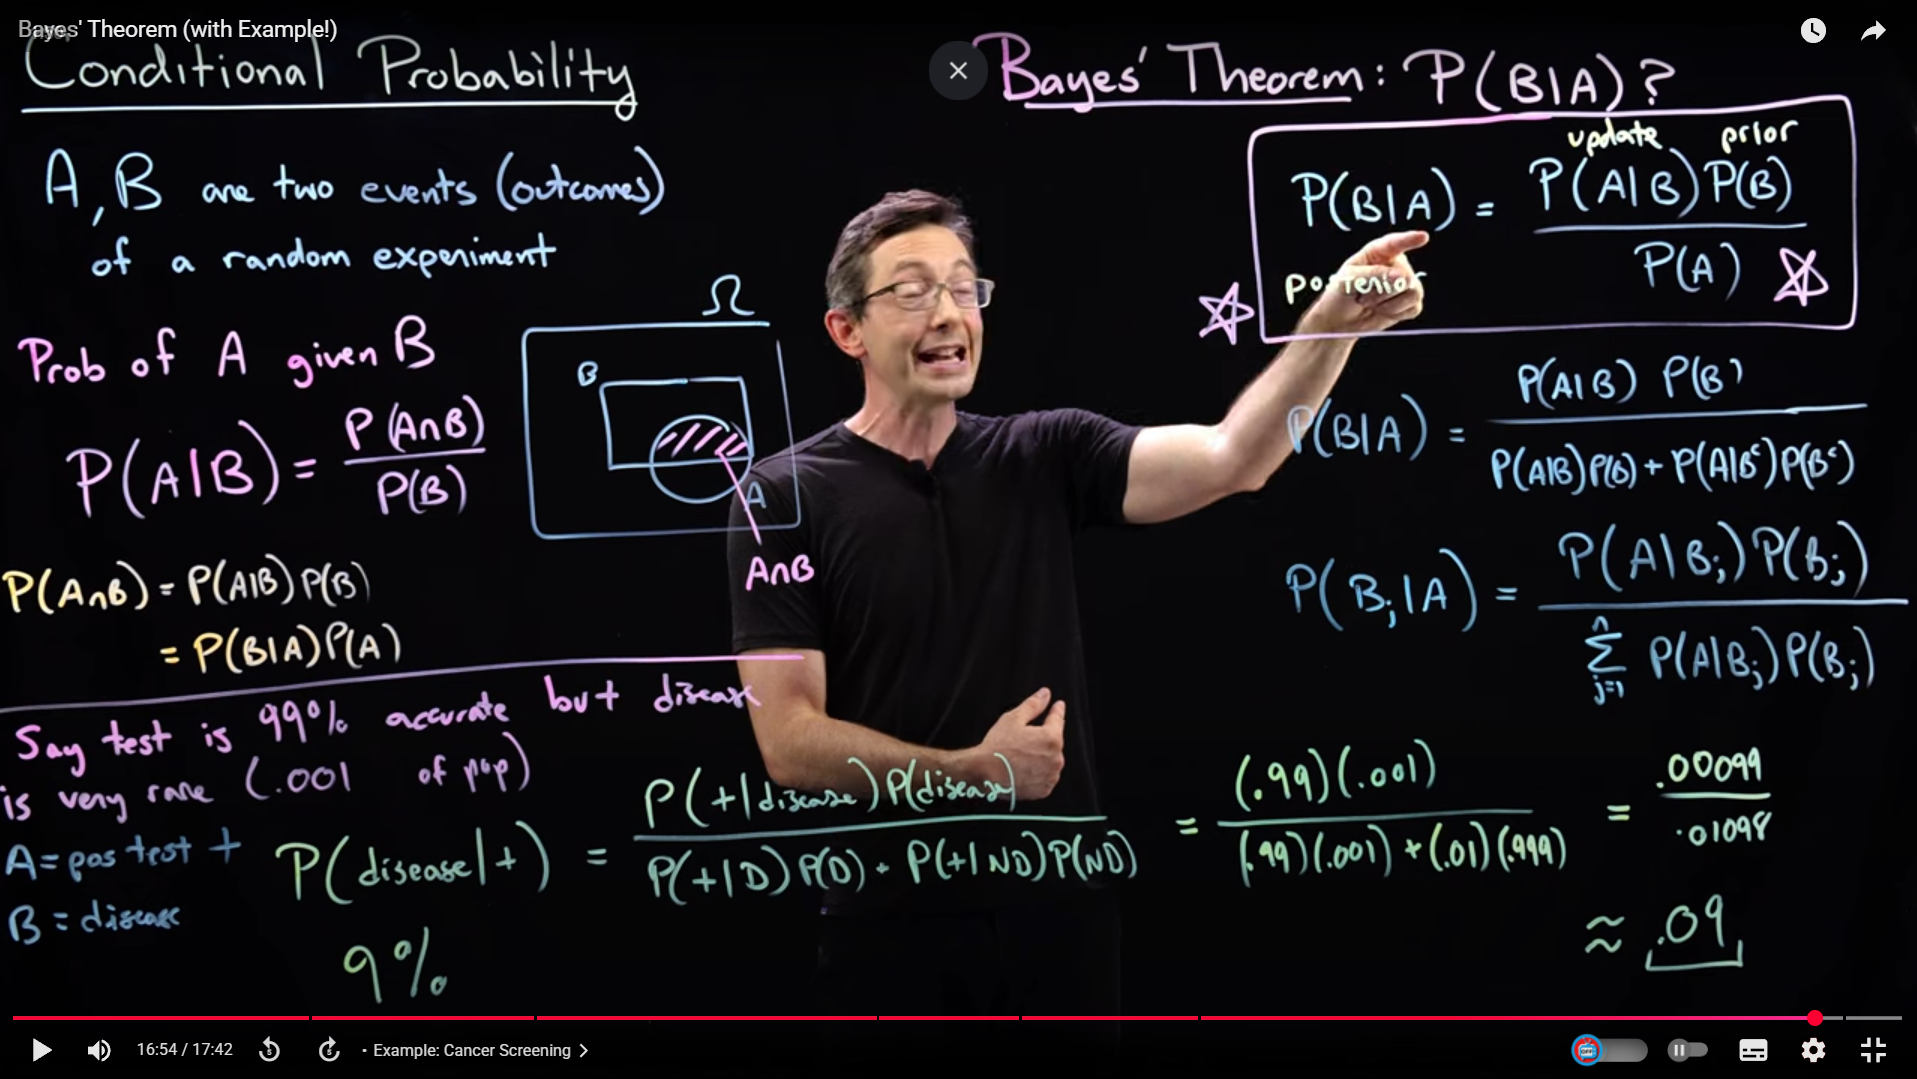 Bayes' Theorem (with Example!)
Conditional Probability
A, B are two events (outcomes)
of a random experiment
Prob of A given B
P(A|B) = P(A∩B) / P(B)
Ω
B
A
A∩B
P(A∩B) = P(A|B)P(B)
= P(B|A)P(A)
Bayes' Theorem: P(B|A)?
update prior
P(B|A) = P(A|B)P(B) / P(A)
posterior
P(B|A) = P(A|B) P(B) / P(A|B)P(B) + P(A|Bᶜ)P(Bᶜ)
P(Bᵢ|A) = P(A|Bᵢ)P(Bᵢ) / Σ j=1 n P(A|Bⱼ)P(Bⱼ)
Say test is 99% accurate but disease
is very rare (.001 of pop)
A = pos test +
B = disease
P(disease|+) = P(+|disease)P(disease) / P(+|D)P(D) + P(+|ND)P(ND) = (.99)(.001) / (.99)(.001) + (.01)(.999) = .00099 / .01098
≈ .09
9%
16:54 / 17:42 • Example: Cancer Screening
5
5
OFF